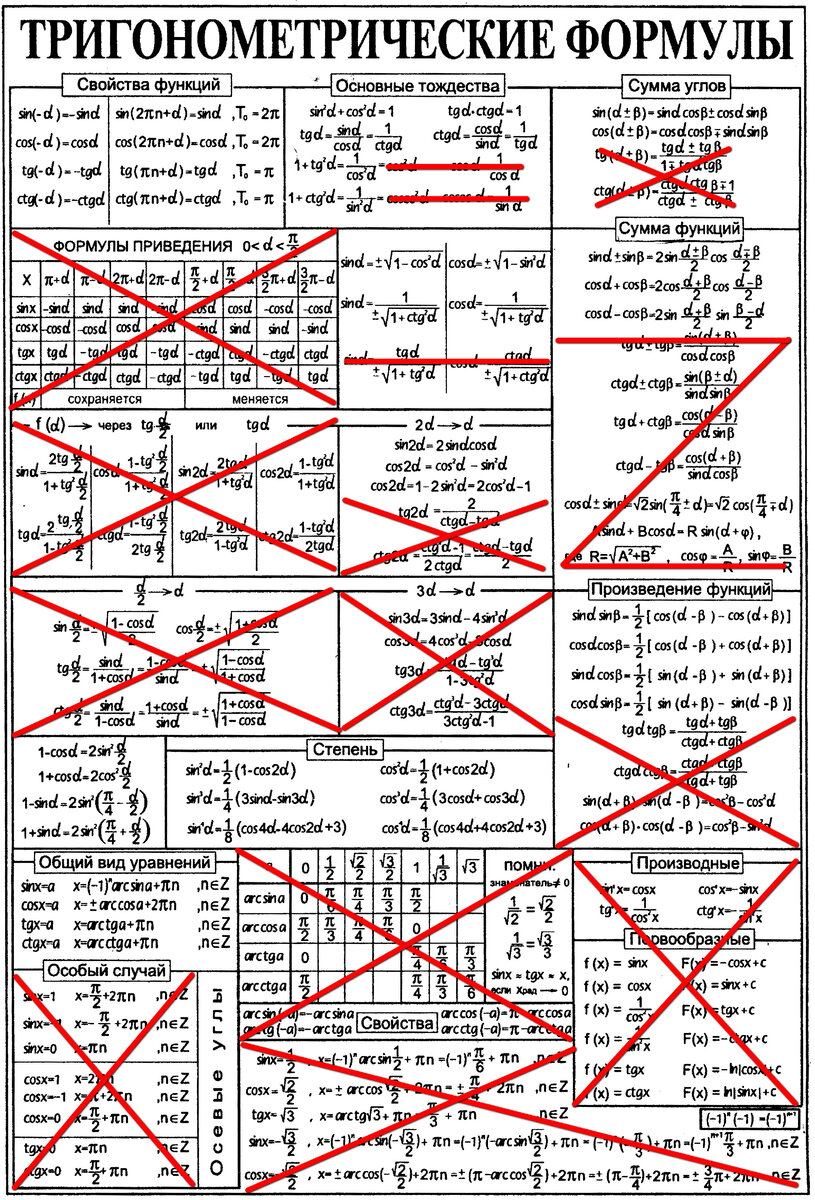 ТРИГОНОМЕТРИЧЕСКИЕ ФОРМУЛЫ
Свойства функций
sin(-d)=-sind sin(2πn+d)=sind ,T₀ = 2π
cos(-d)=cosd cos(2πn+d)=cosd ,T₀ = 2π
tg(-d)=-tgd tg(πn+d)=tgd ,T₀ = π
ctg(-d)=-ctgd ctg(πn+d)=ctgd ,T₀ = π
Основные тождества
sin²d+cos²d=1 tgd·ctgd=1
tgd=sind/cosd=1/ctgd ctgd=cosd/sind=1/tgd
1+tg²d=1/cos²d 1/cosd
1+ctg²d=1/sin²d 1/sind
Сумма углов
sin(d±β)=sind cosβ±cosd sinβ
cos(d±β)=cosd cosβ∓sind sinβ
tg(d±β)=(tgd±tgβ)/(1∓tgd tgβ)
ctg(d±β)=(ctgd ctgβ∓1)/(ctgd±ctgβ)
ФОРМУЛЫ ПРИВЕДЕНИЯ 0<d<π/2
X π+d π-d 2π+d 2π-d π/2+d π/2-d 3/2π+d 3/2π-d
sinx -sind sind sind -sind cosd cosd -cosd -cosd
cosx -cosd -cosd cosd cosd -sind sind sind -sind
tgx tgd -tgd tgd -tgd -ctgd ctgd -ctgd ctgd
ctgx ctgd -ctgd ctgd -ctgd -tgd tgd -tgd tgd
f(x) сохраняется меняется
sind=±√(1-cos²d) cosd=±√(1-sin²d)
sind=1/(±√(1+ctg²d)) cosd=1/(±√(1+tg²d))
sind=tgd/(±√(1+tg²d)) cosd=ctgd/(±√(1+ctg²d))
Сумма функций
sind±sinβ=2sin (d±β)/2 cos (d∓β)/2
cosd+cosβ=2cos (d+β)/2 cos (d-β)/2
cosd-cosβ=2sin (d+β)/2 sin (β-d)/2
tgd±tgβ=sin(d±β)/(cosd cosβ)
ctgd±ctgβ=sin(β±d)/(sind sinβ)
tgd+ctgβ=cos(d-β)/(cosd sinβ)
ctgd-tgβ=cos(d+β)/(sind cosβ)
cosd±sind=√2sin(π/4±d)=√2 cos(π/4∓d)
Asind+Bcosd=R sin(d+φ),
где R=√(A²+B²) , cosφ=A/R , sinφ=B/R
f(d) → через tg d/2 или tgd
sind=(2tg d/2)/(1+tg² d/2) cosd=(1-tg² d/2)/(1+tg² d/2) sin2d=2tgd/(1+tg²d) cos2d=(1-tg²d)/(1+tg²d)
tgd=(2tg d/2)/(1-tg² d/2) ctgd=(1-tg² d/2)/(2tg d/2) tg2d=2tgd/(1-tg²d) ctg2d=(1-tg²d)/2tgd
2d → d
sin2d=2sindcosd
cos2d=cos²d-sin²d
cos2d=1-2sin²d=2cos²d-1
tg2d=2/(ctgd-tgd)
ctg2d=(ctg²d-1)/2ctgd=(ctgd-tgd)/2
d/2 → d
sin d/2=±√((1-cosd)/2) cos d/2=±√((1+cosd)/2)
tg d/2=sind/(1+cosd)=(1-cosd)/sind=±√((1-cosd)/(1+cosd))
ctg d/2=sind/(1-cosd)=(1+cosd)/sind=±√((1+cosd)/(1-cosd))
3d → d
sin3d=3sind-4sin³d
cos3d=4cos³d-3cosd
tg3d=(3tgd-tg³d)/(1-3tg²d)
ctg3d=(ctg³d-3ctgd)/(3ctg²d-1)
Произведение функций
sind sinβ=1/2[cos(d-β)-cos(d+β)]
cosdcosβ=1/2[cos(d-β)+cos(d+β)]
sindcosβ=1/2[sin(d-β)+sin(d+β)]
cosdsinβ=1/2[sin(d+β)-sin(d-β)]
tgd tgβ=(tgd+tgβ)/(ctgd+ctgβ)
ctgd ctgβ=(ctgd+ctgβ)/(tgd+tgβ)
sin(d+β)·sin(d-β)=cos²β-cos²d
cos(d+β)·cos(d-β)=cos²β-sin²d
1-cosd=2sin² d/2
1+cosd=2cos² d/2
1-sind=2sin²(π/4-d/2)
1+sind=2sin²(π/4+d/2)
Степень
sin²d=1/2(1-cos2d) cos²d=1/2(1+cos2d)
sin³d=1/4(3sind-sin3d) cos³d=1/4(3cosd+cos3d)
sin⁴d=1/8(cos4d-4cos2d+3) cos⁴d=1/8(cos4d+4cos2d+3)
Общий вид уравнений
sinx=a x=(-1)ⁿarcsina+πn ,n∈Z
cosx=a x=±arccosa+2πn ,n∈Z
tgx=a x=arctga+πn ,n∈Z
ctgx=a x=arcctga+πn ,n∈Z
a 0 1/2 √2/2 √3/2 1 1/√3 √3
arcsina 0 π/6 π/4 π/3 π/2
arccosa π/2 π/3 π/4 π/6 0
arctga 0 π/4 π/6 π/3
arcctga π/2 π/4 π/3 π/6
ПОМНИ:
знаменатель≠0
1/√2=√2/2
1/√3=√3/3
sinx ≈ tgx ≈ x,
если Xрад → 0
Производные
sin'x=cosx cos'x=-sinx
tg'x=1/cos²x ctg'x=-1/sin²x
Первообразные
f(x)= sinx F(x)=-cosx+c
f(x)= cosx F(x)=sinx+c
f(x)= 1/cos²x F(x)=tgx+c
f(x)= 1/sin²x F(x)=-ctgx+c
f(x)= tgx F(x)=-ln|cosx|+c
f(x)= ctgx F(x)=ln|sinx|+c
(-1)ⁿ(-1)=(-1)ⁿ⁺¹
Особый случай
sinx=1 x=π/2+2πn ,n∈Z
sinx=-1 x=-π/2+2πn ,n∈Z
sinx=0 x=πn ,n∈Z
cosx=1 x=2πn ,n∈Z
cosx=-1 x=π+2πn ,n∈Z
cosx=0 x=π/2+πn ,n∈Z
tgx=0 x=πn ,n∈Z
ctgx=0 x=π/2+πn ,n∈Z
Осевые углы
Свойства
arcsin(-a)=-arcsina arccos(-a)=π-arccosa
arctg(-a)=-arctga arcctg(-a)=π-arcctga
sinx=1/2 , x=(-1)ⁿarcsin1/2+πn=(-1)ⁿπ/6+πn ,n∈Z
cosx=√2/2 , x=±arccos√2/2+2πn=±π/4+2πn ,n∈Z
tgx=√3 , x=arctg√3+πn=π/3+πn n∈Z
sinx=-√3/2 , x=(-1)ⁿarcsin(-√3/2)+πn=(-1)ⁿ(-arcsin√3/2)+πn=(-1)ⁿ(-π/3)+πn=(-1)ⁿ⁺¹π/3+πn ,n∈Z
cosx=-√2/2 , x=±arccos(-√2/2)+2πn=±(π-arccos√2/2)+2πn=±(π-π/4)+2πn=±3/4π+2πn ,n∈Z